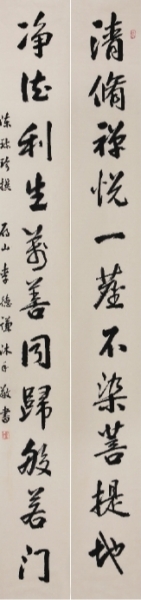 清脩禅悦一塵不染菩提地
净德利生万善同歸般若门
陈瑸珍撰 屏山李德谦沐手敬書